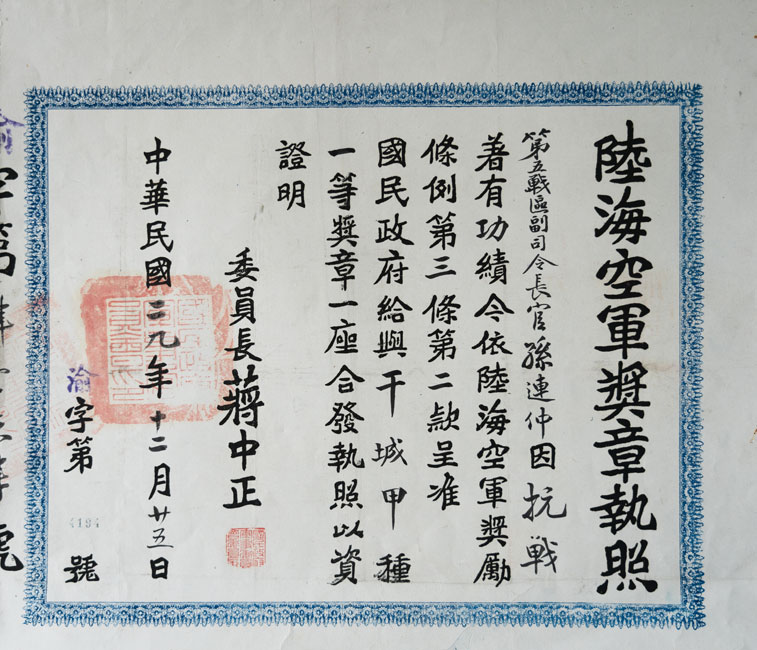 陸海空軍獎章執照
第五戰區副司令長官孫連仲因抗戰
著有功績今依陸海空軍獎勵
條例第三條第二款呈准
國民政府給與干城甲種
一等獎章一座合發執照以資
證明
委員長蔣中正
中華民國二九年十二月廿五日
渝字第4194號
渝字第肆號